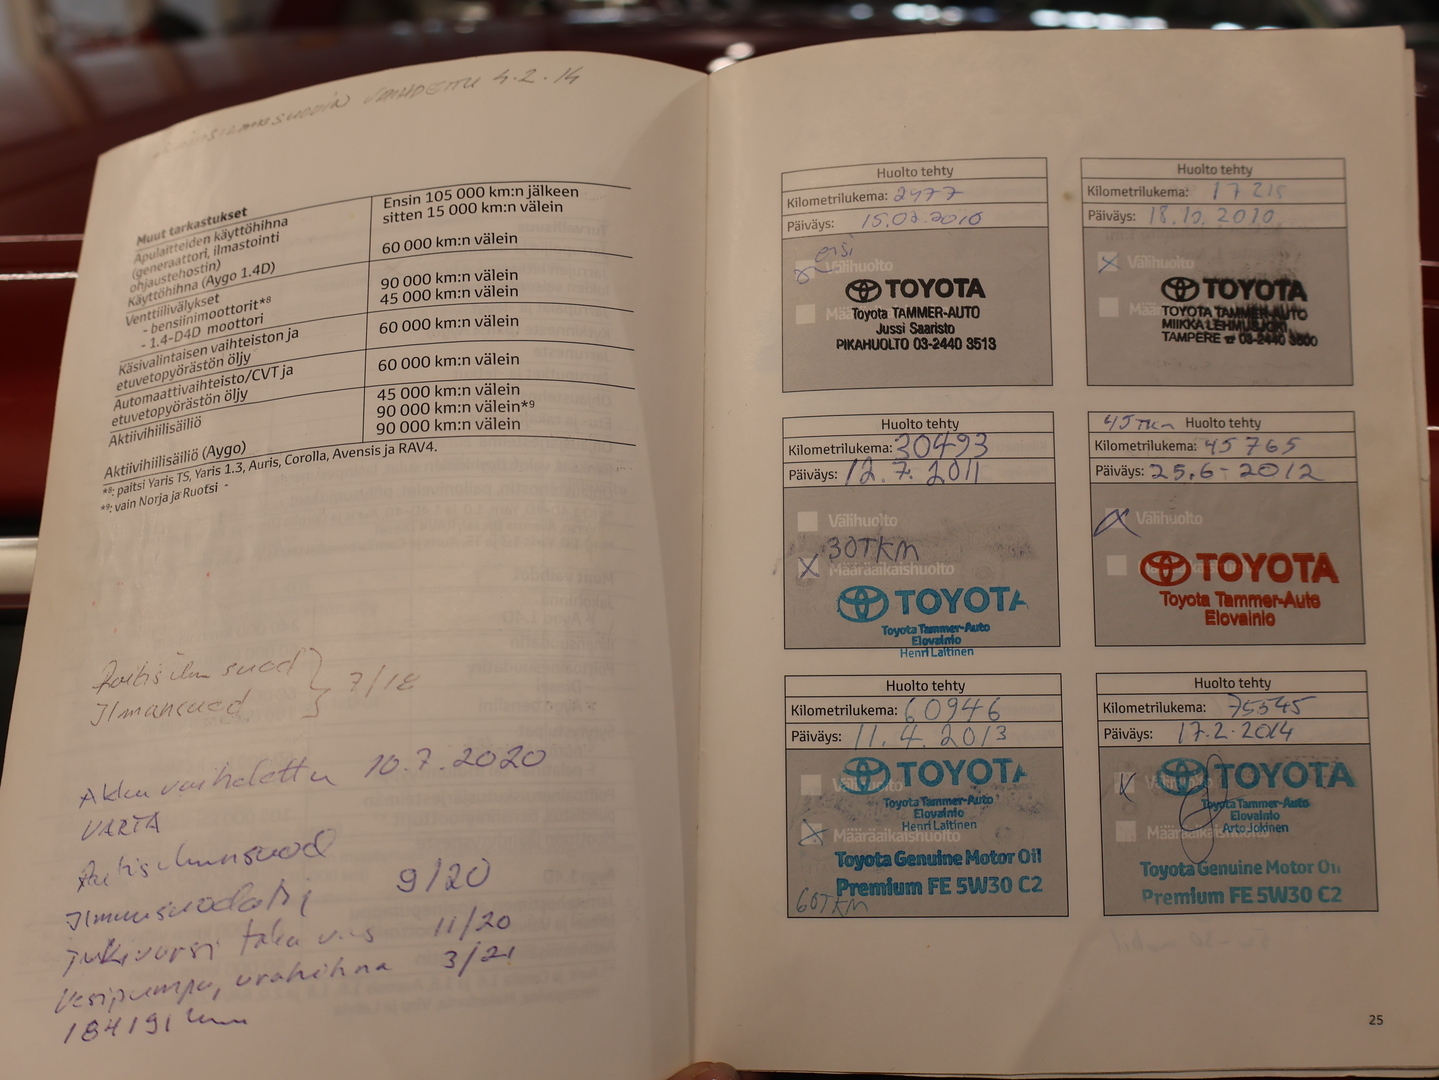 RAITISILMASUODIN VAIHDETTU 4.2.14
Muut tarkastukset
Ensin 105 000 km:n jälkeen
sitten 15 000 km:n välein
Apulaitteiden käyttöhihna
(generaattori, ilmastointi
ohjaustehostin)
Käyttöhihna (Aygo 1.4D)
60 000 km:n välein
Venttiilivälykset
- bensiinimoottorit*8
90 000 km:n välein
- 1.4-D4D moottori
45 000 km:n välein
Käsivalintaisen vaihteiston ja
etuvetopyörästön öljy
60 000 km:n välein
Automaattivaihteisto/CVT ja
etuvetopyörästön öljy
60 000 km:n välein
Aktiivihiilisäiliö
45 000 km:n välein
90 000 km:n välein*9
Aktiivihiilisäiliö (Aygo)
90 000 km:n välein
*8: paitsi Yaris TS, Yaris 1.3, Auris, Corolla, Avensis ja RAV4.
*9: vain Norja ja Ruotsi -
Raitisilm suod
Ilmansuod } 7/18
Akku vaihdettu 10.7.2020
VARTA
Raitisilmansuod
Ilmansuodatin 9/20
Jakovarsi taka vas 11/20
Vesipumpu, urahihna 3/21
184191 km
Huolto tehty
Kilometrilukema: 2477
Päiväys: 15.02.2010
ensi
Välihuolto
TOYOTA
Toyota TAMMER-AUTO
Jussi Saaristo
PIKAHUOLTO 03-2440 3513
Huolto tehty
Kilometrilukema: 17215
Päiväys: 18.10.2010
Välihuolto
TOYOTA
TOYOTA TAMMER-AUTO
MIIKKA LEHMUSJOKI
TAMPERE ☎ 03-2440 3600
Huolto tehty
Kilometrilukema: 30493
Päiväys: 12.7.2011
Välihuolto
30TKM
Määräaikaishuolto
TOYOTA
Toyota Tammer-Auto
Elovainio
Henri Laitinen
45TKM Huolto tehty
Kilometrilukema: 45765
Päiväys: 25.6-2012
Välihuolto
TOYOTA
Toyota Tammer-Auto
Elovainio
Huolto tehty
Kilometrilukema: 60946
Päiväys: 11.4.2013
Välihuolto
TOYOTA
Toyota Tammer-Auto
Elovainio
Henri Laitinen
Määräaikaishuolto
Toyota Genuine Motor Oil
Premium FE 5W30 C2
60TKM
Huolto tehty
Kilometrilukema: 75545
Päiväys: 17.2.2014
Välihuolto
TOYOTA
Toyota Tammer-Auto
Elovainio
Arto Jokinen
Määräaikaishuolto
Toyota Genuine Motor Oil
Premium FE 5W30 C2
25